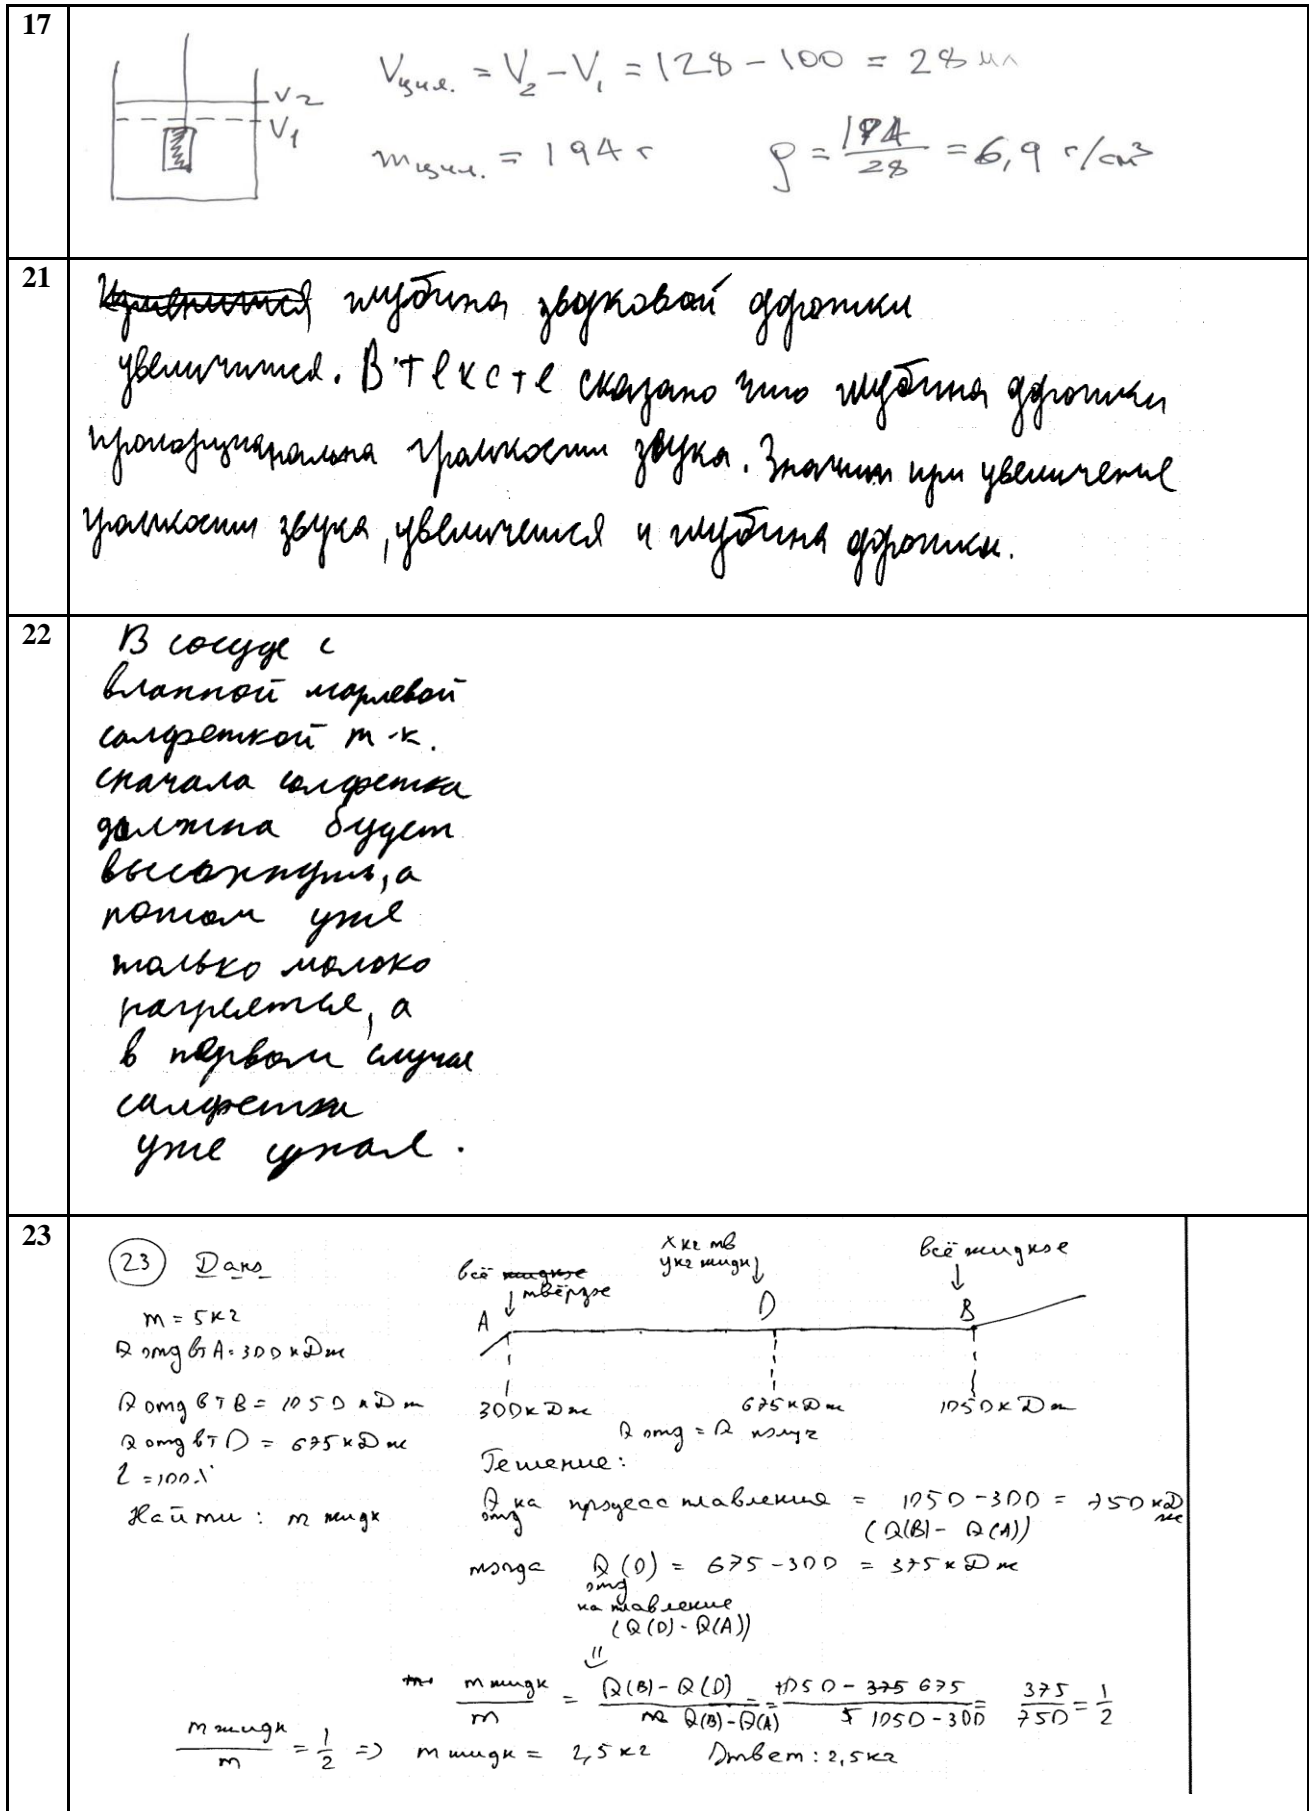 17
Vцил. = V₂ – V₁ = 128 – 100 = 28 мл
V₂
V₁
mцил. = 194 г ρ = 194/28 = 6,9 г/см³
21
глубина звуковой ддрожки
увеличится. В тексте сказано что глубина ддрожки
громкости звука. Значит при увеличение
громкости звука, увеличется и глубина ддрожки.
22
В сосуде с
марлевой
салфеткой т-к.
сначала салфетка
должна будет
а
потом уже
только молоко
а
в первом случае
салфетка
уже
23
23 Дано
m = 5 кг
Q отд в т A = 300 кДж
Q отд в т B = 1050 кДж
Q отд в т D = 675 кДж
Найти: m жидк
всё жидкое
твёрдое
x кг тв
y кг жидк
всё жидкое
A D B
300 кДж 675 кДж 1050 кДж
Q отд = Q получ
Решение:
Q отд на процесс плавления = 1050 – 300 = 750 кДж
(Q(B) – Q(A))
тогда Q(D) = 675 – 300 = 375 кДж
отд
на плавление
(Q(D) – Q(A))
m жидк / m = Q(B) – Q(D) / Q(B) – Q(A) = 1050 – 375 675 / 1050 – 300 = 375/750 = 1/2
m жидк / m = 1/2 => m жидк = 2,5 кг Ответ: 2,5 кг